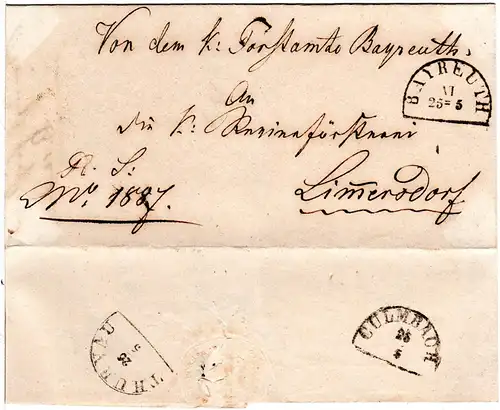 Von dem k: Forstamte Bayreuth.
BAYREUTH
VI
25 5
An
die K: Revierförsterei
R. S:
No. 1887.
Limmersdorf
THURNAU
25 5
CULMBACH
25
5